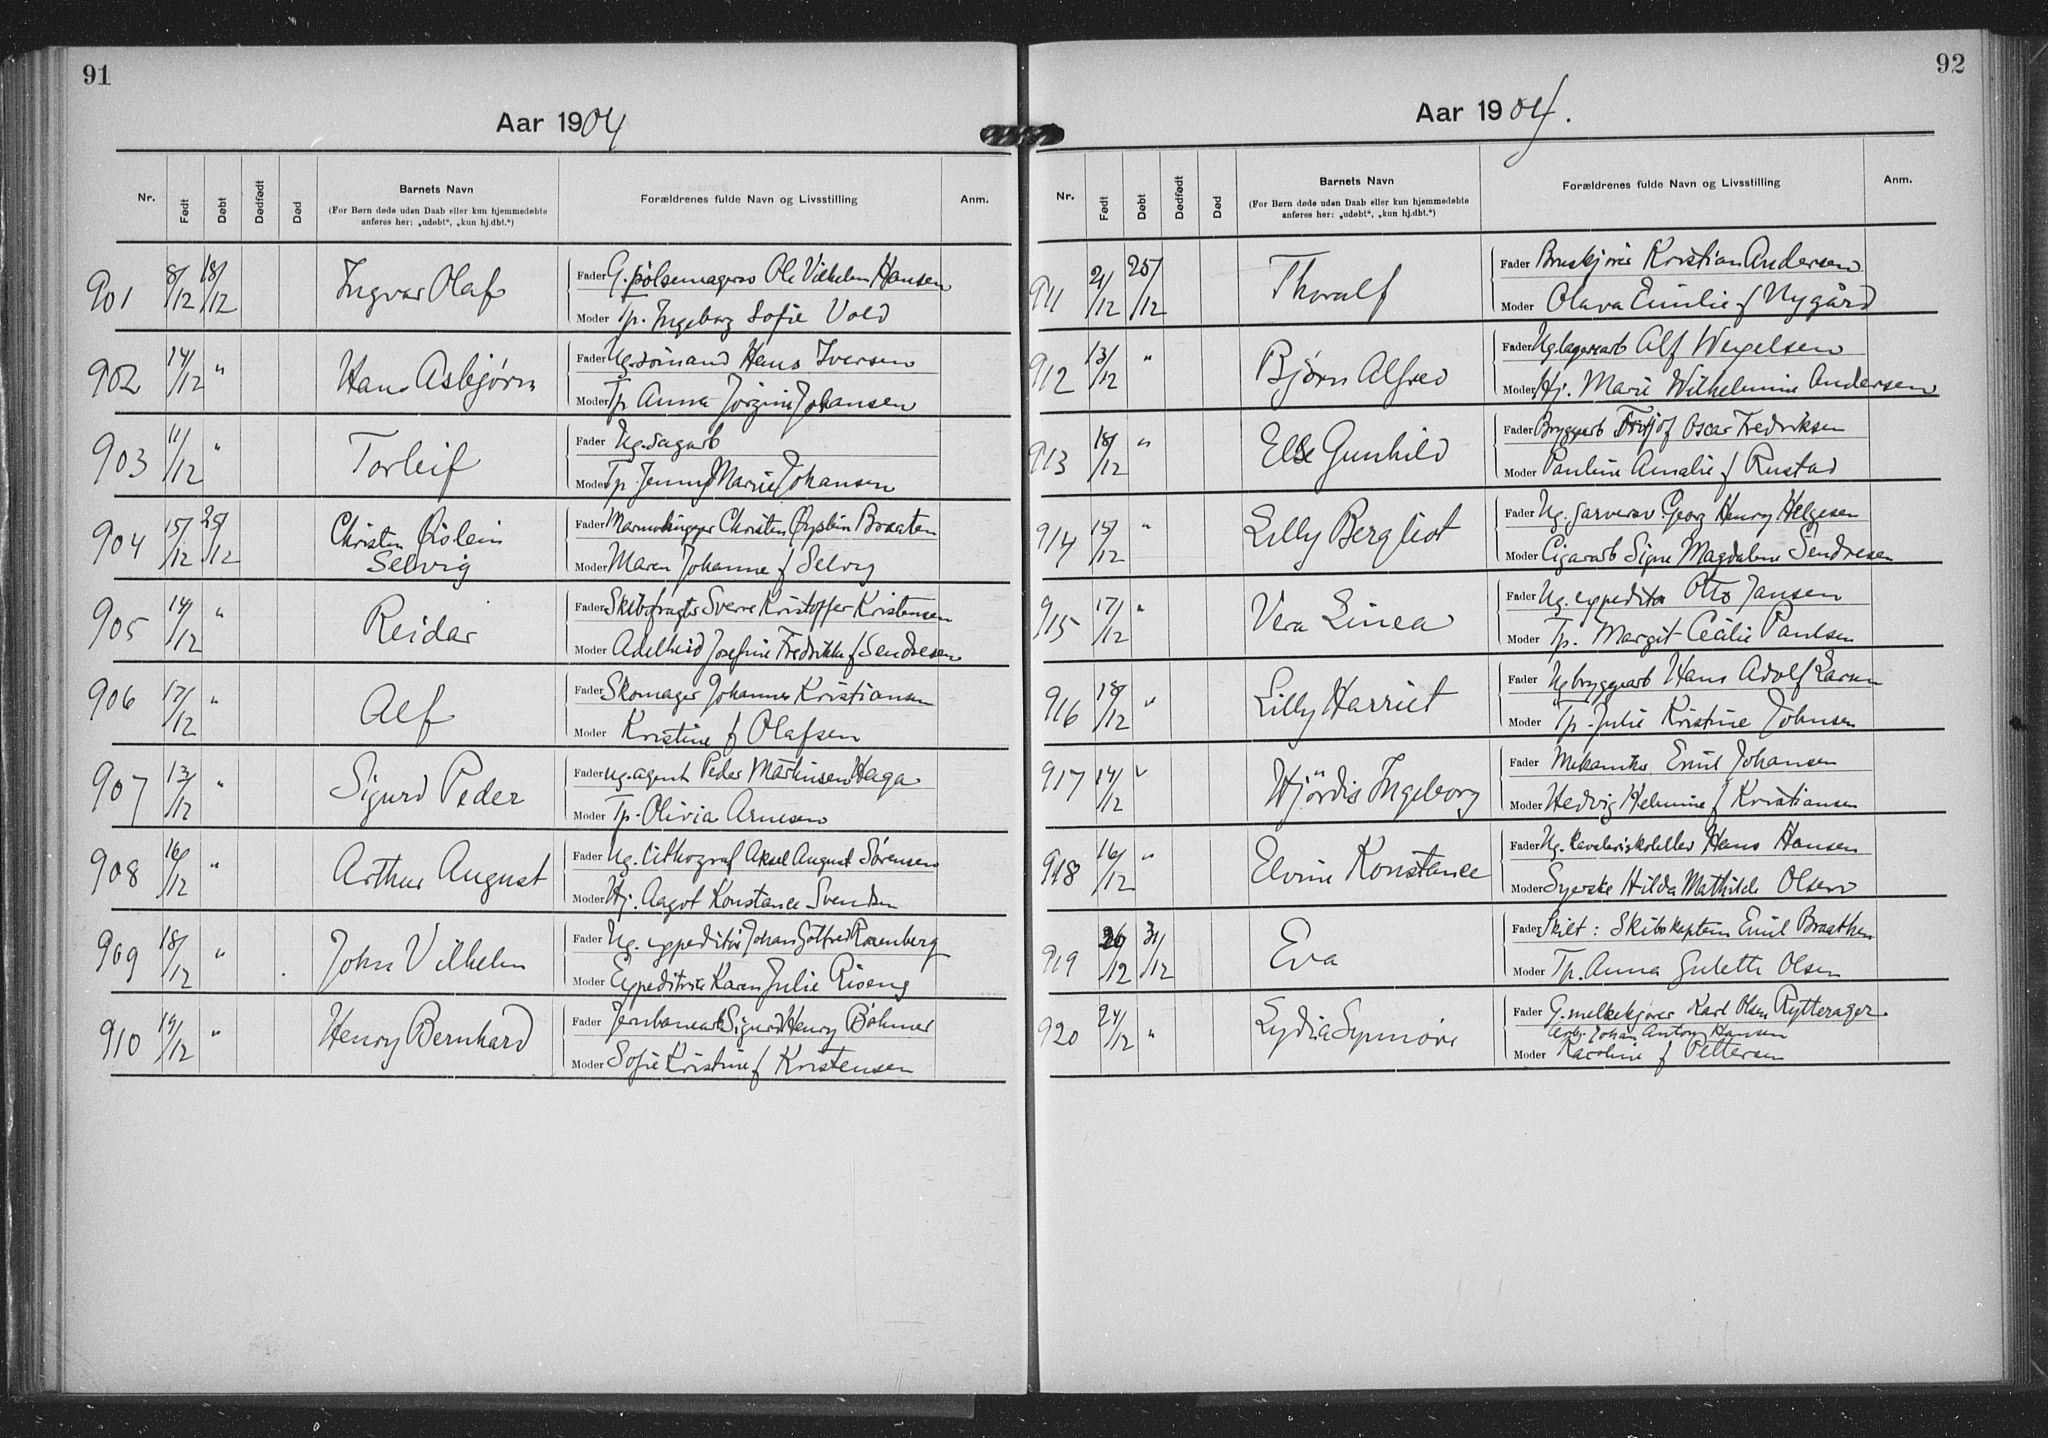 91
Aar 1904
Nr. Født Døbt Dødfødt Død Barnets Navn Forældrenes fulde Navn og Livsstilling Anm.
(For Børn døde uden Daab eller kun hjemmedøbte
anføres her: „udøbt“, „kun hj.dbt.“)
901 8/12 18/12 Ingvar Olaf Fader G. pølsemagersv Ole Vilhelm Hansen
Moder Tp. Ingeborg Sofie Vold
902 14/12 " Hans Asbjørn Fader Ug. sømand Hans Iversen
Moder Tp Anna Jørgine Johansen
903 11/12 " Torleif Fader Ug. sagarb
Moder Tp. Jenny Marie Johansen
904 15/12 25/12 Christen Øistein Fader Marmorhugger Christen Øystein Braaten
Selvig Moder Maren Johanne f Selvig
905 14/12 " Reidar Fader Skibsfragter Sverre Kristoffer Kristensen
Moder Adelheid Josefine Fredrikke f Sendresen
906 17/12 " Alf Fader Skomager Johannes Kristiansen
Moder Kristine f Olafsen
907 13/12 " Sigurd Peder Fader Ug. agent Peder Martinsen Haga
Moder Tp. Olivia Arnesen
908 16/12 " Arthur August Fader Ug. lithograf Aksel August Sørensen
Moder Hj. Aagot Konstance Svendsen
909 18/12 " John Vilhelm Fader Ug. expeditør Johan Gotfred Rosenberg
Moder Expeditrice Karen Julie Riseng
910 19/12 " Henry Bernhard Fader Jernbanearb Sigurd Henry Böhmer
Moder Sofie Kristine f Kristensen
92
Aar 1904.
Nr. Født Døbt Dødfødt Død Barnets Navn Forældrenes fulde Navn og Livsstilling Anm.
(For Børn døde uden Daab eller kun hjemmedøbte
anføres her: „udøbt“, „kun hj.dbt.“)
911 21/12 25/12 Thoralf Fader Kristian Andersen
Moder Olava Emilie f Nygård
912 13/12 " Bjørn Alfred Fader Ug lagerarb Alf Weyelsen
Moder Hj. Marie Wilhelmine Andersen
913 18/12 " Else Gunhild Fader Bryggearb Fritjof Oscar Fredriksen
Moder Pauline Amalie f Rustad
914 15/12 " Lilly Bergliot Fader Ug. garversv. Georg Henry Helgesen
Moder Cigararb Signe Magdalene Sendresen
915 17/12 " Vera Linea Fader Ug. expeditør Otto Jansen
Moder Tp. Margit Cecilie Paulsen
916 18/12 " Lilly Harriet Fader Ug bryggearb Hans Adolf Larsen
Moder Tp. Julie Kristine Johnsen
917 14/12 " Hjördis Ingeborg Fader Mekaniker Emil Johansen
Moder Hedvig Helmine f Kristiansen
918 16/12 " Elvine Konstance Fader Ug. Kavaleriskoleelev Hans Hansen
Moder Syerske Hilda Mathilde Olsen
919 26/12 31/12 Eva Fader Skilt: Skibskaptein Emil Braathen
Moder Tp. Anna Gulette Olsen
920 24/12 " Lydia Synnøve Fader G. melkekjører Karl Olsen Rytterager
Arb. Johan Anton Hansen
Moder Karoline f Pettersen